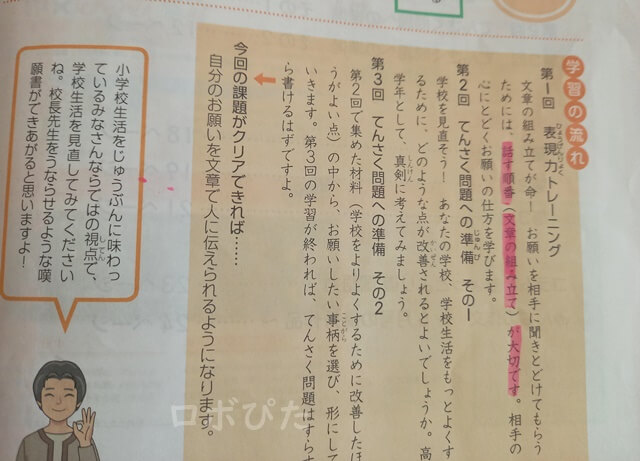 学習の流れ
第1回 表現力トレーニング
文章の組み立てが命! お願いを相手に聞きとどけてもらう
ためには、話す順番(文章の組み立て)が大切です。相手の
心にとどくお願いの仕方を学びます。
第2回 てんさく問題への準備 その1
学校を見直そう! あなたの学校、学校生活をもっとよくす
るために、どのような点が改善されるとよいでしょうか。高
学年として、真剣に考えてみましょう。
第3回 てんさく問題への準備 その2
第2回で集めた材料(学校をよりよくするために改善したほ
うがよい点)の中から、お願いしたい事柄を選び、形にして
いきます。第3回の学習が終われば、てんさく問題はすらす
ら書けるはずですよ。
今回の課題がクリアできれば……
自分のお願いを文章で人に伝えられるようになります。
小学校生活をじゅうぶんに味わっ
ているみなさんならではの視点で、
学校生活を見直してみてください
ね。校長先生をうならせるような嘆
願書ができあがると思いますよ!
ロボぴた